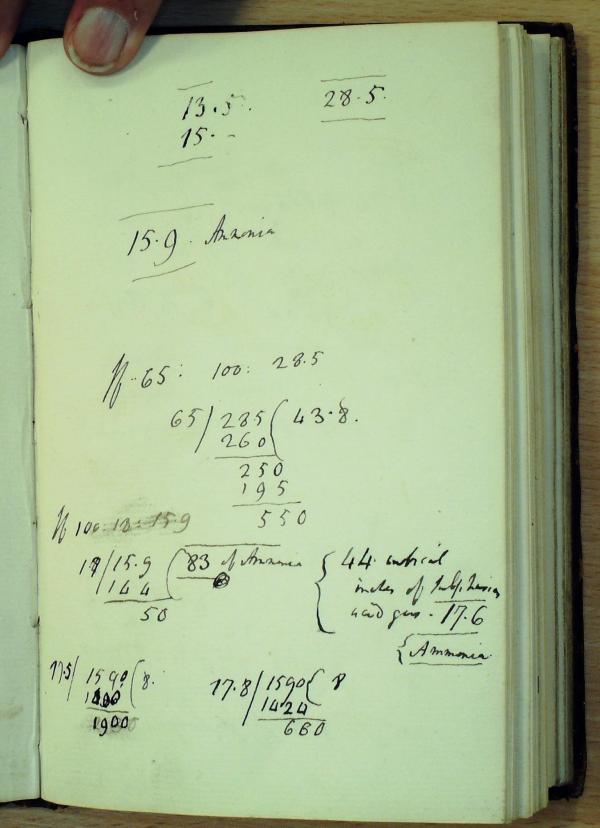 13.5. 28.5.
15.
15.9. Ammonia
If 65: 100: 28.5
65/285(43.8.
260
250
195
550
If 100 18 15.9
18/15.9(83 of Ammonia
144
50
{44. cubical
inches of
acid gas. 17.6
{Ammonia
17.5/1590(8.
1400
1900
17.8/1590{8
1424
660